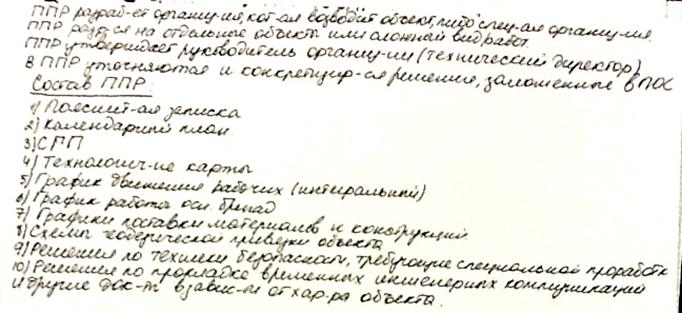 ППР разраб-ет организ-ия, кот-ая возводит объект, либо спец-ая организ-ия.
ППР разр-ся на отдельные объекты или сложный вид работ.
ППР утверждает руководитель организ-ии (технический директор)
В ППР уточняются и конкретизир-ся решения, заложенные в ПОС
Состав ППР:
1) Пояснит-ая записка
2) Календарный план
3) СГП
4) Технологич-ие карты
5) График движения рабочих (интегральный)
6) График работы осн. бригад
7) Графики поставки материалов и конструкций.
8) Схемы геодезической привязки объекта
9) Решения по технике безопасности, требующие специальной проработк
10) Решения по прокладке временных инженерных коммуникаций
и другие док-ты в завис-ти от хар-ра объекта.